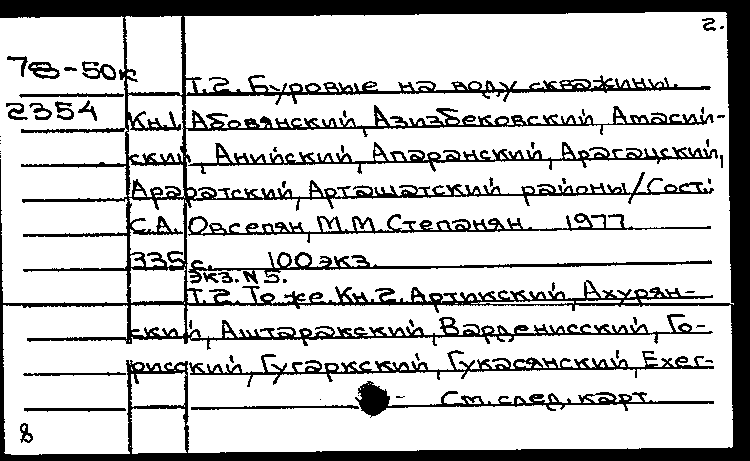 2.
78-50к
Т.2. Буровые на воду скважины.
2354
Кн.1. Абовянский, Азизбековский, Амасий-
ский, Анийский, Апаранский, Арагацский,
Араратский, Арташатский районы/Сост.:
С.А. Овсепян, М.М. Степанян. 1977.
335 с. 100 экз.
экз. N 5.
Т.2. То же. Кн.2. Артикский, Ахурян-
ский, Аштаракский, Варденисский, Го-
рисский, Гугаркский, Гукасянский, Ехег-
- См. след. карт.
8